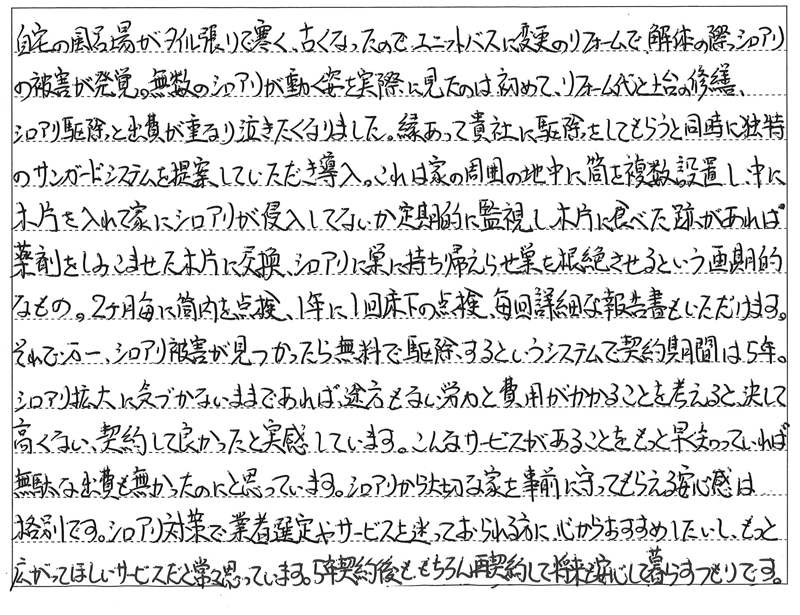 自宅の風呂場がタイル張りで寒く、古くなったので、ユニットバスに変更のリフォームで、解体の際、シロアリ
の被害が発覚。無数のシロアリが動く姿を実際に見たのは初めて、リフォーム代と土台の修繕、
シロアリ駆除、と出費が重なり泣きたくなりました。縁あって貴社に駆除をしてもらうと同時に独特
のサンガードシステムを提案していただき導入。これは家の周囲の地中に筒を複数設置し、中に
木片を入れて家にシロアリが侵入してないか定期的に監視し、木片に食べた跡があれば
薬剤をしみこませた木片に交換、シロアリに巣に持ち帰えらせ巣を根絶させるという画期的
なもの。2ヶ月毎に筒内を点検、1年に1回床下の点検、毎回詳細な報告書もいただけます。
それで万一、シロアリ被害が見つかったら無料で駆除するというシステムで契約期間は5年。
シロアリ拡大に気づかないままであれば、途方もない労力と費用がかかることを考えると、決して
高くない、契約して良かったと実感しています。こんなサービスがあることをもっと早く知っていれば
無駄な出費も無かったのにと思っています。シロアリから大切な家を事前に守ってもらえる安心感は
格別です。シロアリ対策で業者選定やサービスを迷っておられる方に、心からおすすめしたいし、もっと
広がってほしいサービスだと常々思っています。5年契約後も、もちろん再契約して将来も安心して暮らすつもりです。